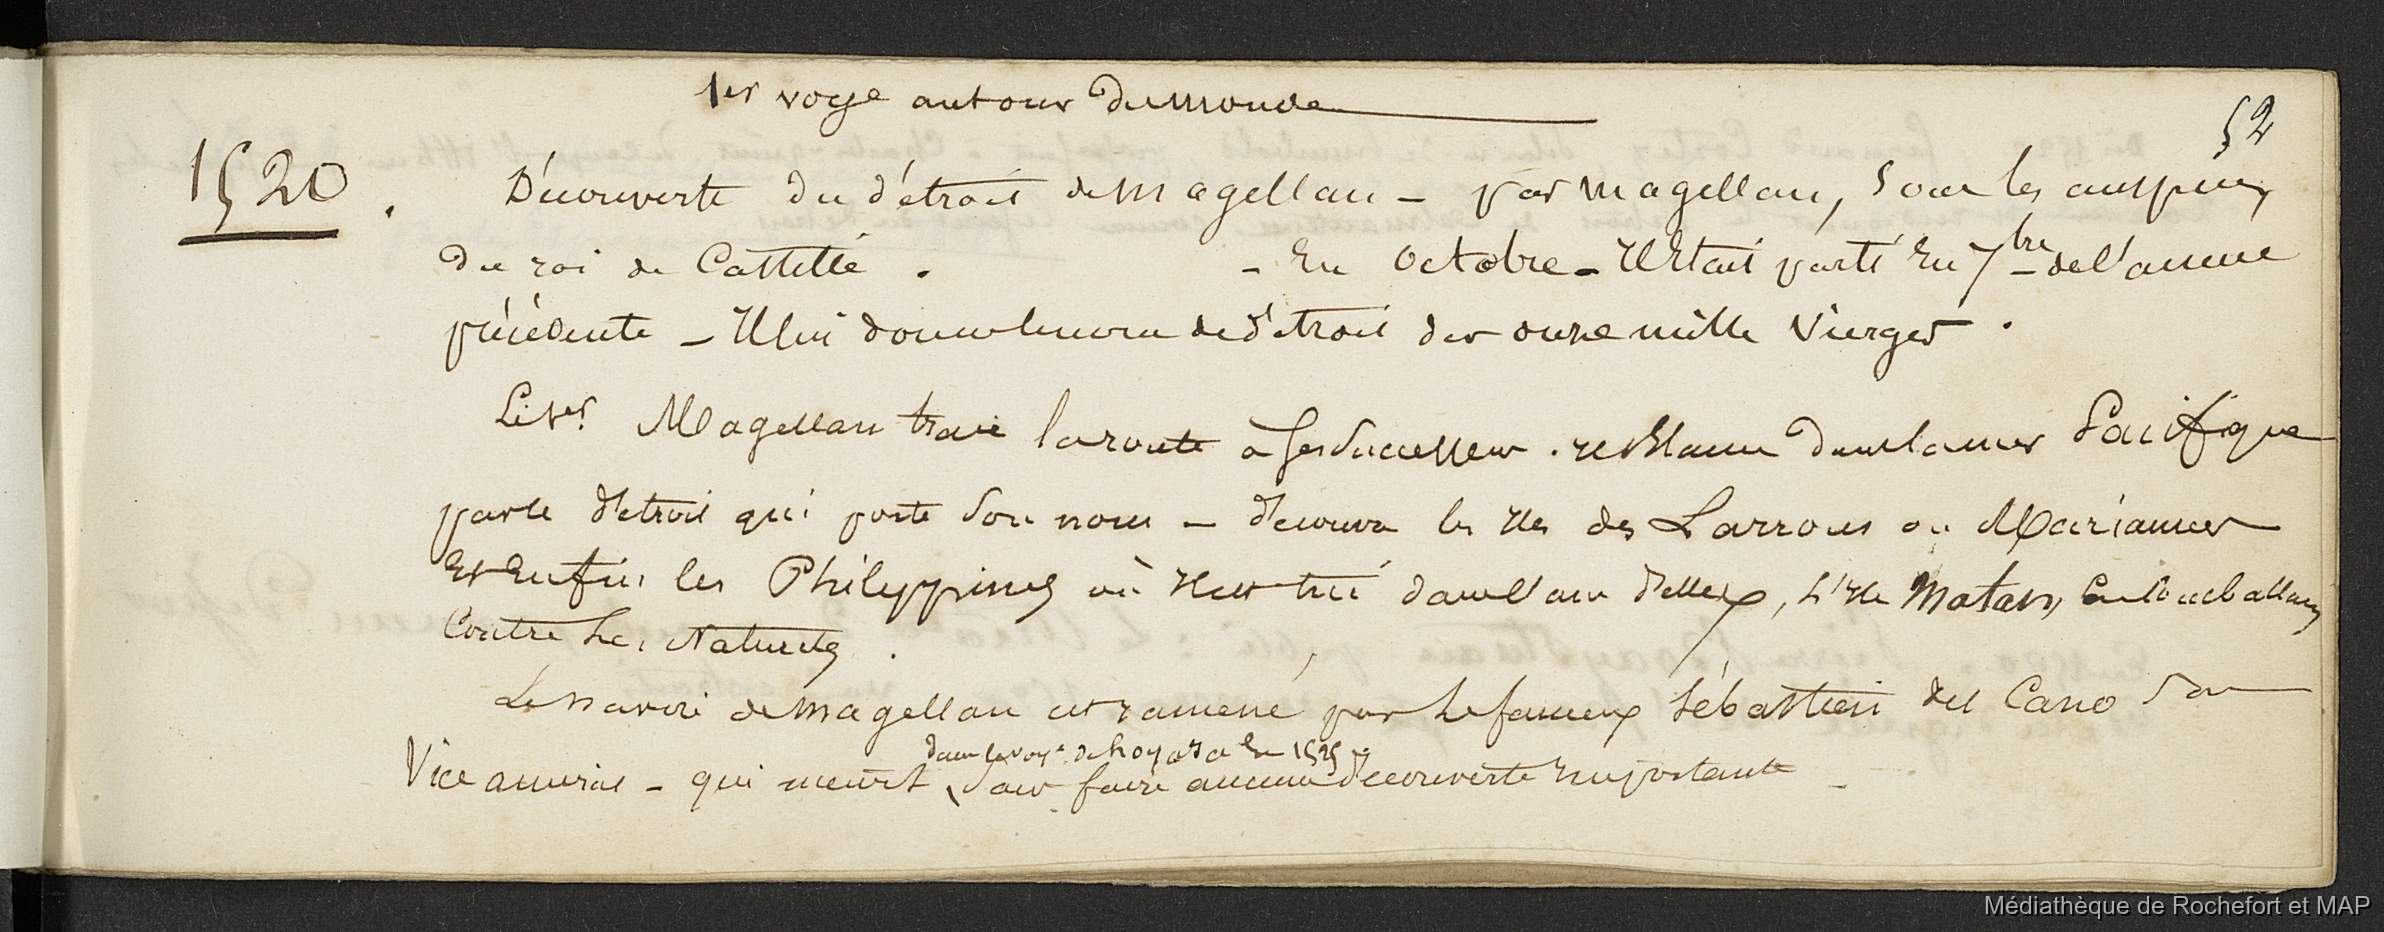 1er voyge autour du monde
52
1520. Découverte du détroit de magellan - par magellan, sous les auspices
du roi de Castille. - En octobre - Il était parti En 7bre de l'année
précédente - Il lui donne le nom de détroit des onze mille Vierges.
Magellan trace la route à ses successeurs. il s'élance dans la mer Pacifique
par le détroit qui porte son nom - découvre les Iles des Larrons ou Mariannes
Et Enfin les Philippines où Il est tué dans l'une d'elles, L'Ile Matan, En combattant
Contre les Naturels.
Le navire de magellan est ramené par le fameux Sébastien del Cano son
dans le voy.e de Loyasa En 1525
Vice amiral - qui meurt sans faire aucune découverte importante -
Médiathèque de Rochefort et MAP